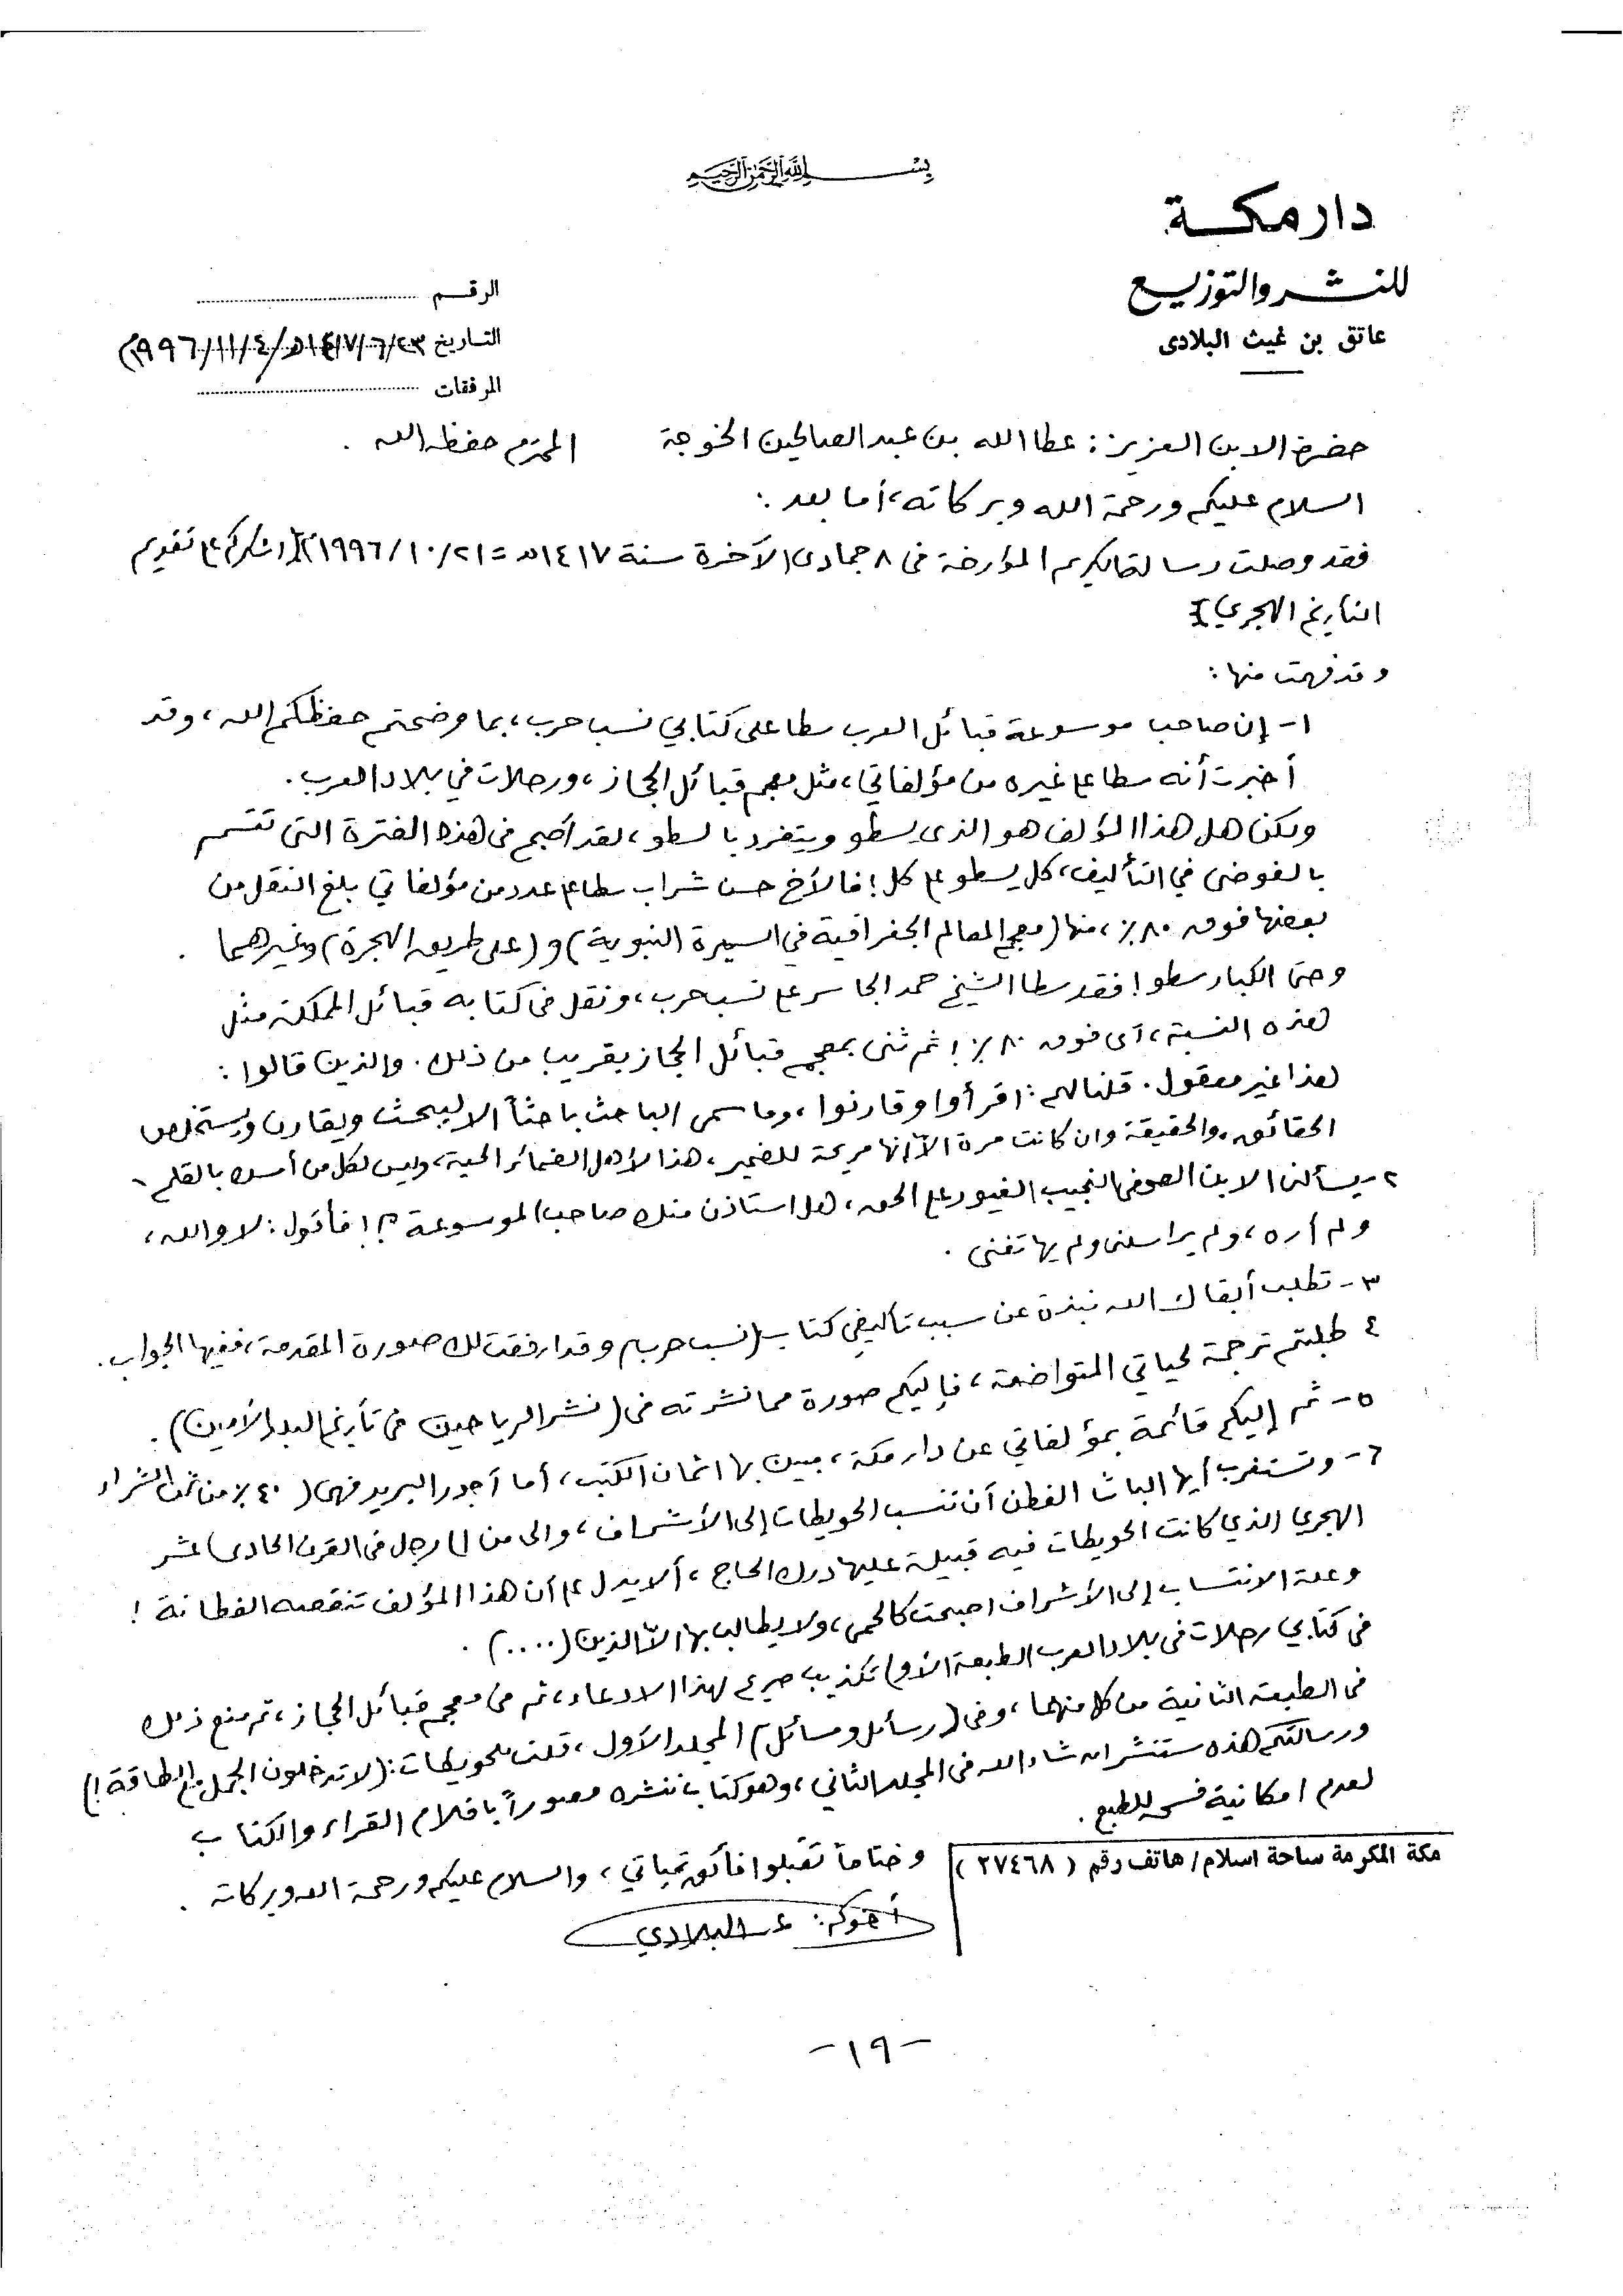 بسم الله الرحمن الرحيم
دار مكة
للنشر والتوزيع
عاتق بن غيث البلادى
الرقم
التاريخ ٢٣/٦/١٤١٧هـ/٤/١١/١٩٩٦م
المرفقات
حضرة الابن العزيز: عطا الله بن عبد الصالحين الخوجة المحترم حفظه الله .
السلام عليكم ورحمة الله وبركاته، أما بعد:
فقد وصلت رسالتكم الكريم المؤرخة فى ٨ جمادى الآخرة سنة ١٤١٧هـ = ٢١/١٠/١٩٩٦م [اشكركم على تقويم
التاريخ الهجري]
وقد فهمت منها:
١- إن صاحب موسوعة قبائل العرب سطا على كتابي نسب حرب، بما وضحتم حفظكم الله، وقد
أخبرت أنه سطا على غيره من مؤلفاتي، مثل معجم قبائل الحجاز، ورحلات في بلاد العرب.
ولكن هل هذا المؤلف هو الذى يسطو ويتفرد بالسطو، لقد أصبح فى هذه الفترة التى تتسم
بالفوضى في التأليف، كل يسطو على كل! فالأخ حسن شراب سطا على عدد من مؤلفاتي بلغ النقل من
بعضها فوق ٨٠٪، منها (معجم المعالم الجغرافية في السيرة النبوية) و (على طريق الهجرة) وغيرهما .
وحتى الكبار سطوا! فقد سطا الشيخ حمد الجاسر على نسب حرب، ونقل فى كتابه قبائل المملكة مثل
هذه النسبة، أى فوق ٨٠٪! ثم ثنى بمعجم قبائل الحجاز بقريب من ذلك. والذين قالوا:
هذا غير معقول. قلنا لهم: اقرأوا وقارنوا، وما سمى الباحث باحثاً الا ليبحث ويقارن ويستخلص
الحقائق، والحقيقة وان كانت مرة الاّ انها مريحة للضمير، هذا لأهل الضمائر الحية، وليس لكل من أمسك بالقلم.
٢- يسألنى الابن الصوفى النجيب الغيور على الحق، هل استاذن منك صاحب الموسوعة ؟! فأقول: لا والله،
ولم أره، ولم يراسلنى ولم يهاتفنى .
٣- تطلب أبقاك الله نبذة عن سبب تأليفي كتاب (نسب حرب) وقد ارفقت لك صورة المقدمة، ففيها الجواب.
٤ طلبتم ترجمة لحياتي المتواضعة، فإليكم صورة مما نشرته فى (نشر الرياحين فى تأريخ البلد الأمين).
٥- ثم إليكم قائمة بمؤلفاتي عن دار مكة، مبين بها اثمان الكتب، أما أجور البريد فهى (٤٠٪ من ثمن الشراء
٦- وتستغرب أيها الباث الفطن أن تنسب الحويطات إلى الأشراف، والى من ؟! رجل فى القرن الحادى عشر
الهجري الذي كانت الحويطات فيه قبيلة عليها درك الحاج، ألا يدل على أن هذا المؤلف تنقصه الفطانة !
وعلة الانتساب إلى الأشراف اصبحت كالحمى، ولا يطالب بها الاّ الذين (....) .
فى كتابي رحلات فى بلاد العرب الطبعة الأولى تكذيب صريح لهذا الادعاء، ثم فى معجم قبائل الحجاز، ثم منع ذلك
فى الطبعة الثانية من كل منهما، وفى (رسائل ومسائل) المجلد الأول، قلت للحويطات: (لا تدخلون الجمل مع الطاقة!)
ورسالتكم هذه ستنشر ان شاء الله فى المجلد الثاني، وهو كتاب ننشره مصوراً باقلام القراء والكتاب
لعدم امكانية فسحه للطبع.
وختاماً تقبلوا فائق تحياتي، والسلام عليكم ورحمة الله وبركاته .
أخوكم: ع البلادي
مكة المكرمة ساحة اسلام/ هاتف رقم (٢٧٤٦٨)
-١٩-